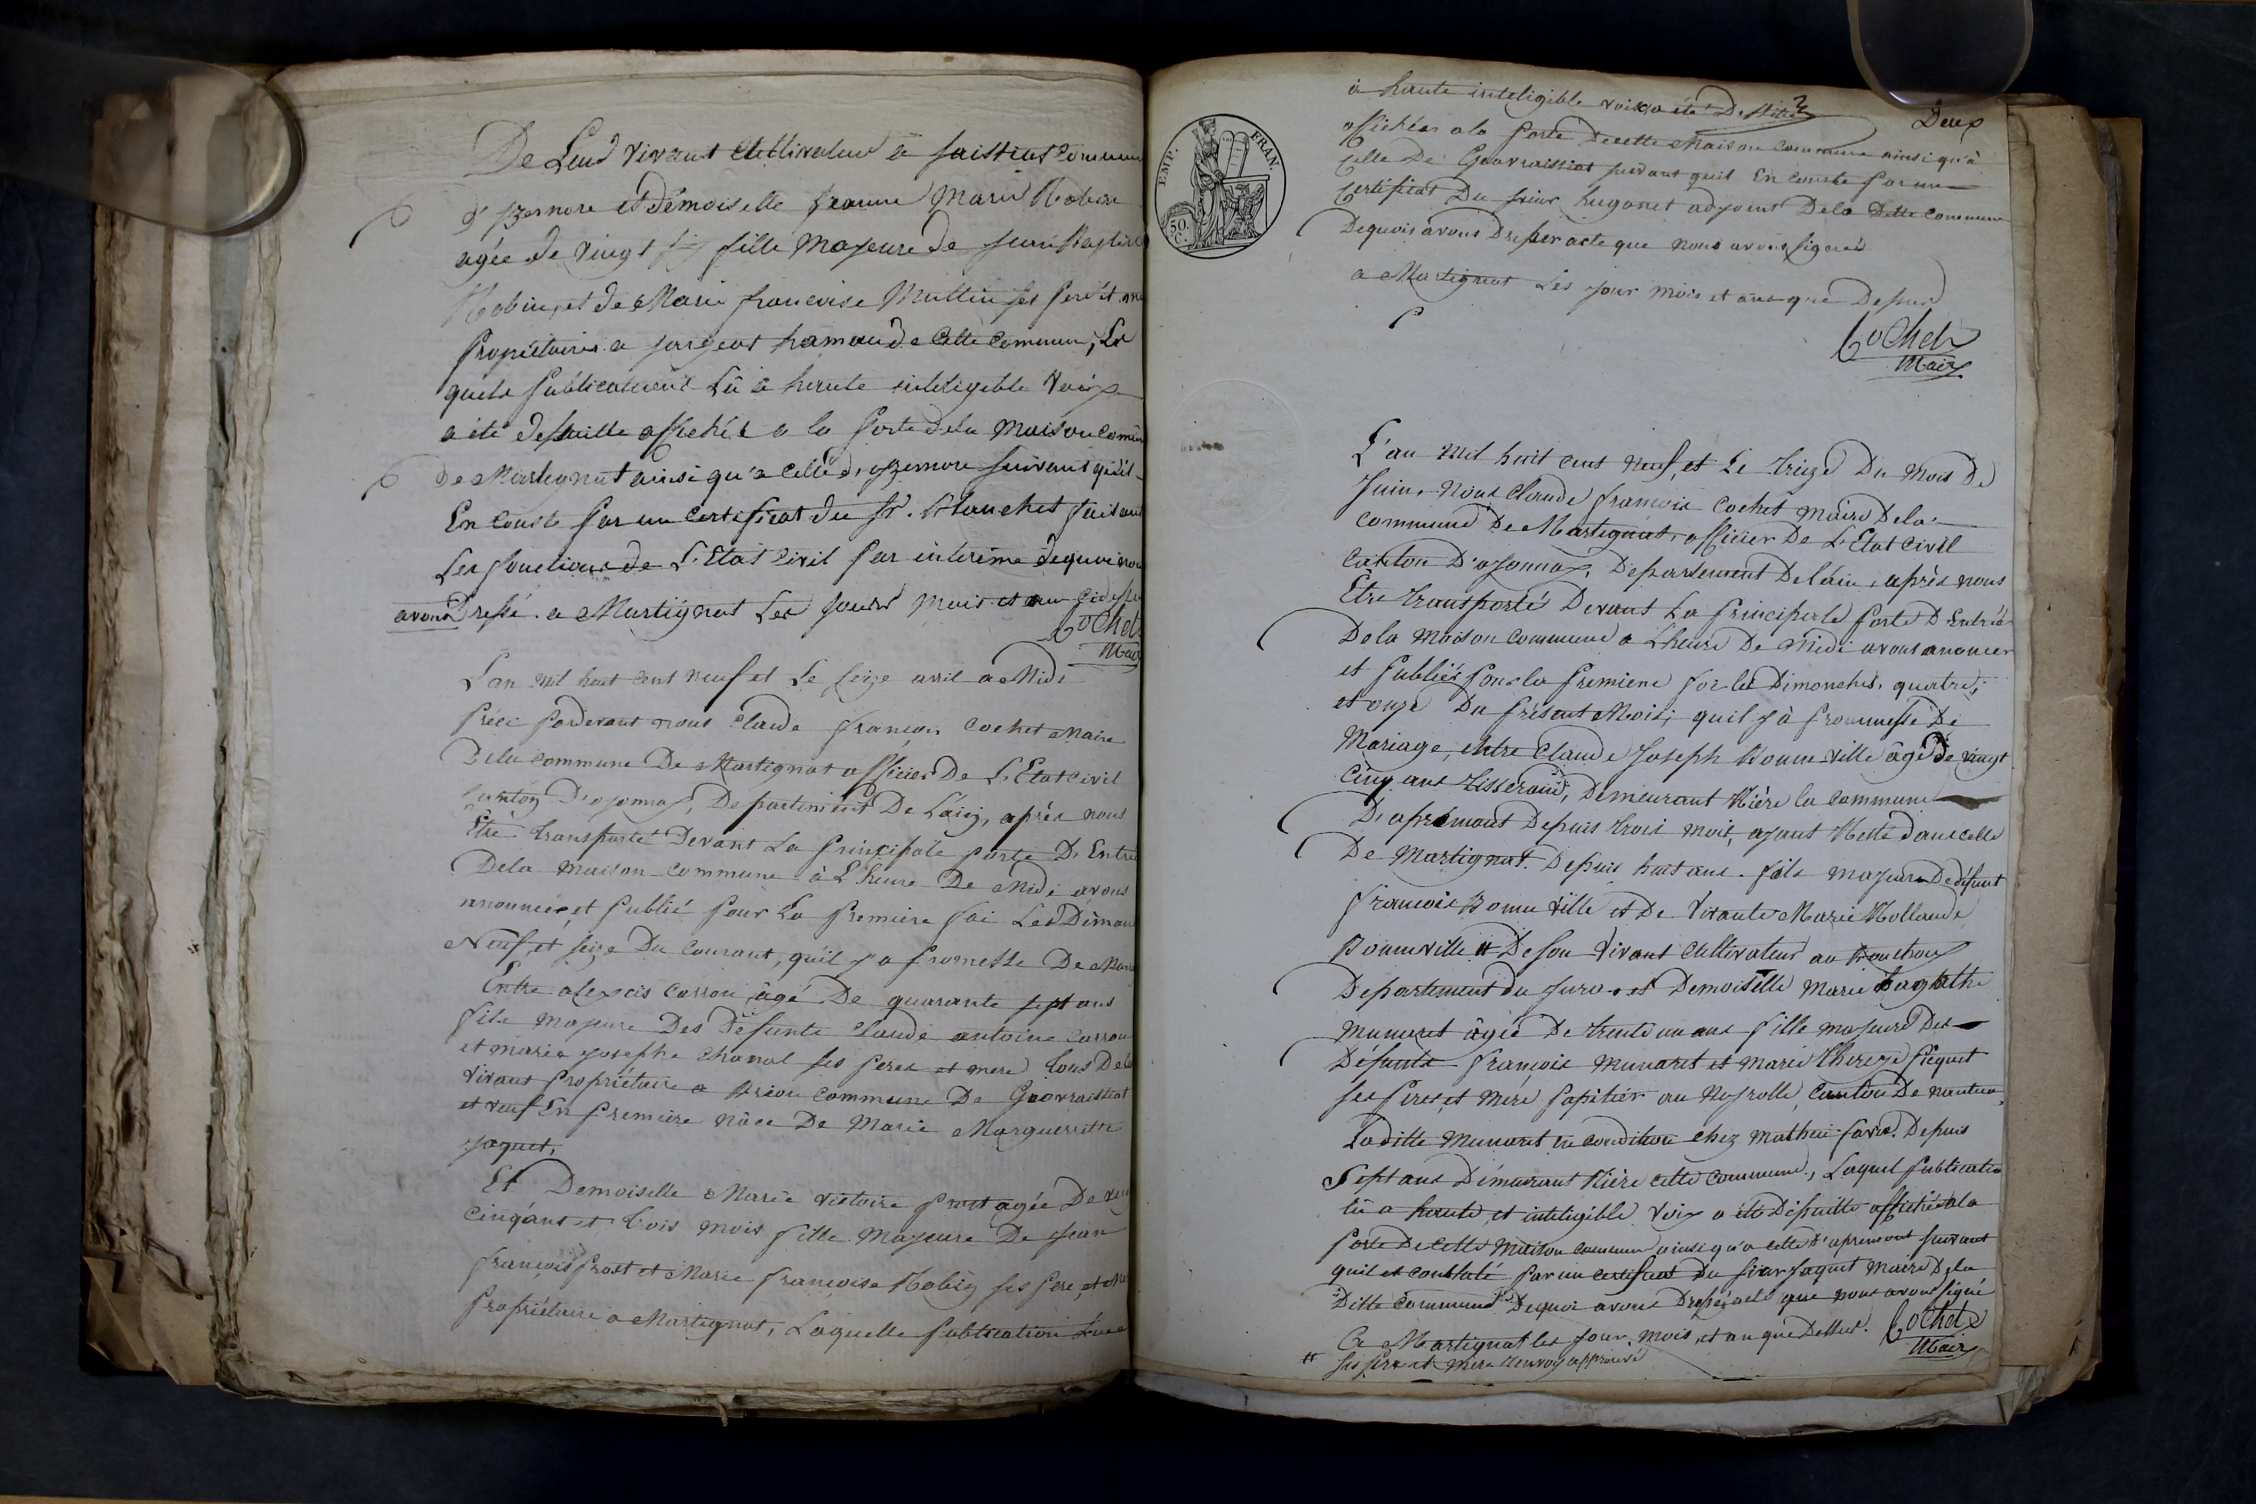 De Leurs vivant Cultivateur à commune
d'izernore et Demoiselle jeanne Marie Robin
agée de vingt six fille Majeure de jean Baptiste
Robin, et de Marie francoise Multin ses père et me
propriétaires a hamau de Cette Commun, La
quele publication Lû à haute inteligeble Voix
a été desuitte affichée a la porte dela Maison comun
de Martignat ainsi qu'à celle d'ozernore suivant qu'il
En conste par un certificat du Sr. Blanchet faisant
Les fonctions de L'Etat Civil par interime dequoi nou
avons Dressé. a Martignat Les jours Mois et an
Cochet
Maire
L'an mil huit cent neuf et Le seize avril a Midi
préci pardevant nous Claude françois Cochet Maire
Dela commune De Martignat officier De L'Etat civil
Canton D'oyonnax, Departement De L'ain, après nous
Etre transporté Devant La principale porte D'Entré
Dela maison commune à L'heure De Midi avons
annoncer, et publié pour La premiere foi Les Diman
Neuf, et seize Du courant, qu'il y a promesse De Mari
Entre alexcis Carron, âgé De quarante sept ans
file majeure Des Defunts Claude antoine Carron
et marie josephe Chanal ses peres et mere tous De
vivant propriétaire a Brion commune De Geovraissiat
et veuf En premiere nôce De Marie Marguerite
jaquet.
Et Demoiselle Marie victoire prost agée De vin
cinq ans et trois mois fille Majeure De jean
françois prost et Marie françoise Robin ses père, et m
propriétaire a Martignat, Laquelle publication Luee
à haute inteligible voix, a été De suitte
2
Deux
affichée a la porte decette Maison commune ainsi qu'à
Celle De Geovraissiat suivant quil En conste par un
Certificat Du sieur hugonet adjoint Dela Ditte commune
Dequoi avons Dresser acte que nous avons signer
a Martignat Les jour mois et ans que Dessus
Cochet
Maire
EMP. FRAN.
50. C.
L'an mil huit cent neuf, et Le treize Du mois De
juin, Nous Claude françois Cochet Maire Dela
commune De Martignat, officier De L'Etat Civil
Canton D'oyonnax, Departement De l'ain, après nous
Etre transportés Devant La principale porte D'Entrée
Dela Maison commune a L'heure De Midi avons anoncer
et publiés pour la premiere foi les Dimanches, quatre,
et onze Du présent Mois; quil y à promesse De
Mariage, entre Claude Joseph Bonneville âgé de vingt
Cinq ans tisserand, Demeurant Rière la commune
D'apremont Depuis trois mois, ayant Resté dans celle
De Martignat Depuis huit ans. fils majeure De défunt
françois Bonneville et De vivante Marie Rollande
Bonneville # De son vivant cultivateur au
Departement du jura. et Demoiselle Marie Hagathe
Munaret âgée De trente un ans fille majeure Des
Défunts françois Munaret et Marie Thereze piquet
ses peres, et mere papitier au Neyrolle, Canton De nantua,
Laditte Munaret en condition chez Mathieu favre. Depuis
sept ans Démeurant Rière cette commune, Laquel publication
lû a haute, et inteligible Voix a été Désuitte affichée a la
porte De cette Maison commun ainsi qu'a celle d'apremont suivant
quil et constaté par un certificat Du sieur jaquet Maire Dela
Ditte commune Dequoi avons Dressé acte que nous avons signé
A Martignat les jour, mois, et an que Dessus.
Cochet
Maire
# ses pere et mere Renvoy approuvé